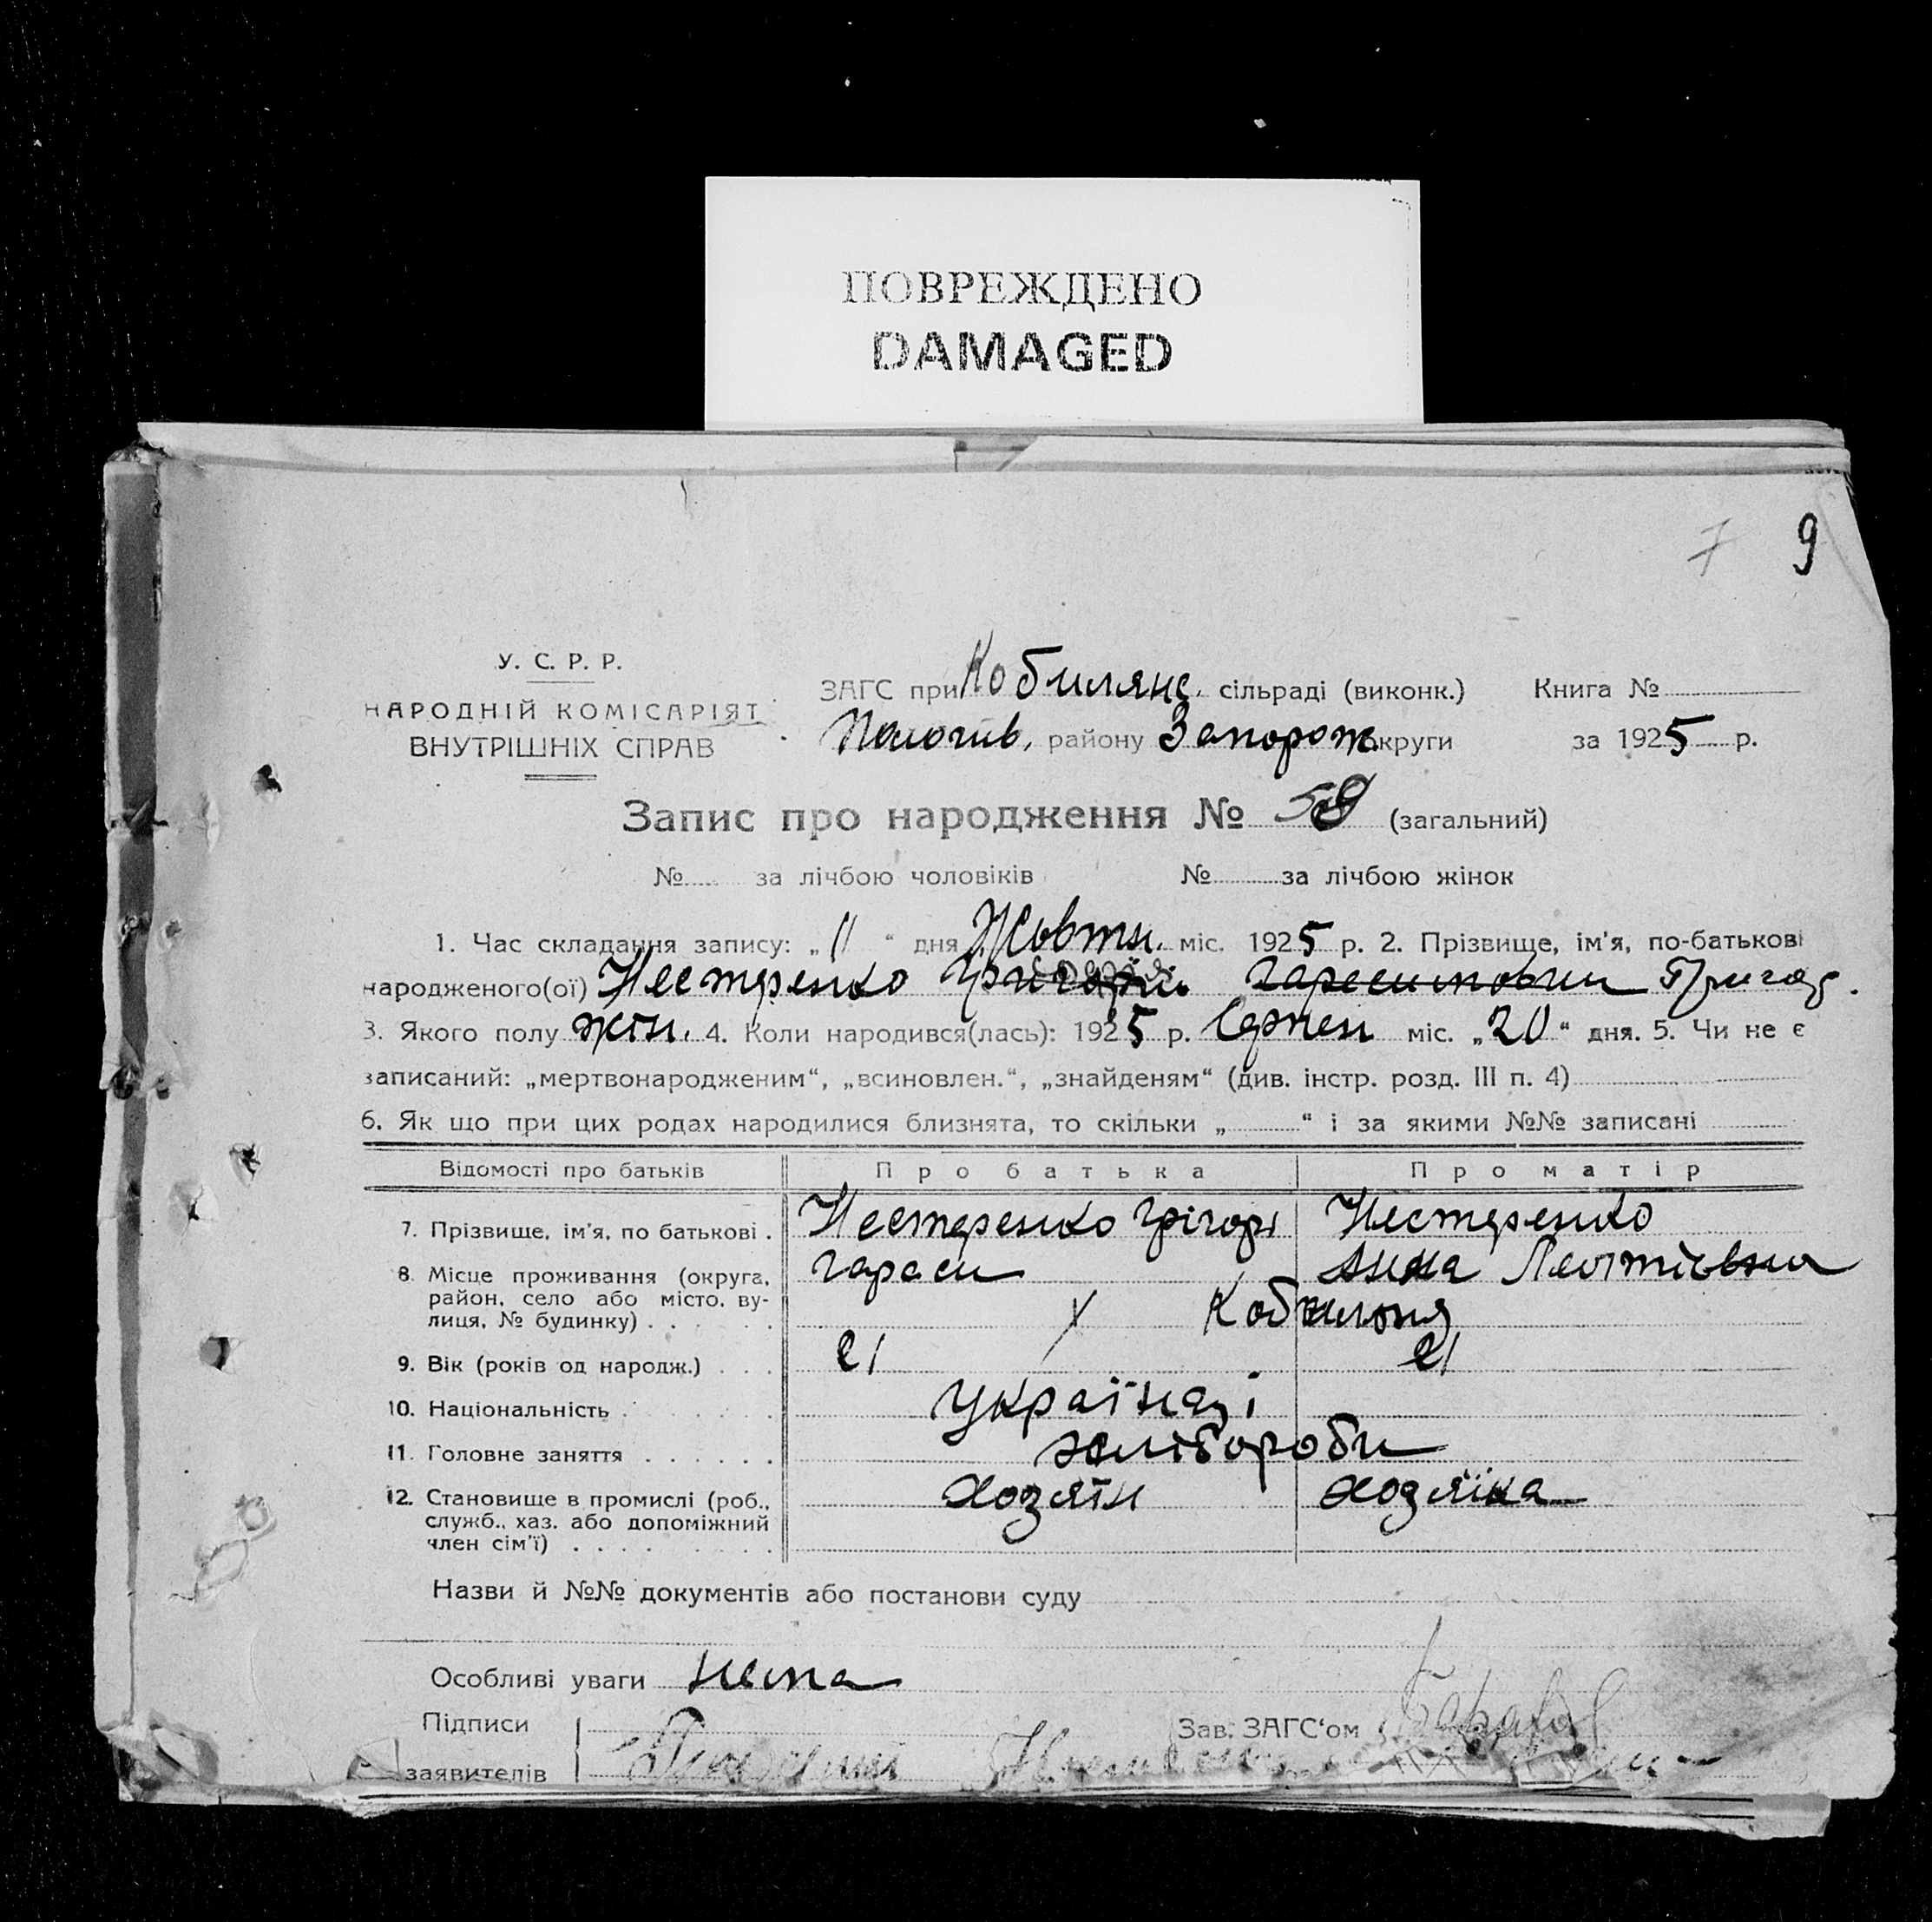 ПОВРЕЖДЕНО
DAMAGED
7 9
У. С. Р. Р.
НАРОДНІЙ КОМІСАРІЯТ
ВНУТРІШНІХ СПРАВ
ЗАГС при Кобилянс. сільраді (виконк.) Книга №
Пологів. району Запорож округи за 1925 р.
Запис про народження № (загальний)
№ за лічбою чоловіків № за лічбою жінок
1. Час складання запису: „11“ дня Жовтн. міс. 1925 р. 2. Прізвище, ім'я, по-батькові
народженого(ої) Нестеренко Григор.
3. Якого полу жін. 4. Коли народився(лась): 1925 р. Серпен міс. „20“ дня. 5. Чи не є
записаний: „мертвонародженим“, „всиновлен.“, „знайденям“ (див. інстр. розд. III п. 4)
6. Як що при цих родах народилися близнята, то скільки „ “ і за якими №№ записані
Відомості про батьків Про батька Про матір
7. Прізвище, ім'я, по батькові . Нестеренко Грігорі Нестеренко
Гараси Анна Леотієвна
8. Місце проживання (округа,
район, село або місто, ву-
лиця, № будинку) . . . . .
9. Вік (років од народж.) . . . 21 21
10. Національність . . . . . . українці
11. Головне заняття . . . . . . хлібороби
12. Становище в промислі (роб.,
служб., хаз. або допоміжний
член сім'ї) . . . . . . . . . хозяїн хозяїка
Назви й №№ документів або постанови суду
Особливі уваги нема
Підписи
заявителів
Зав. ЗАГС‘ом